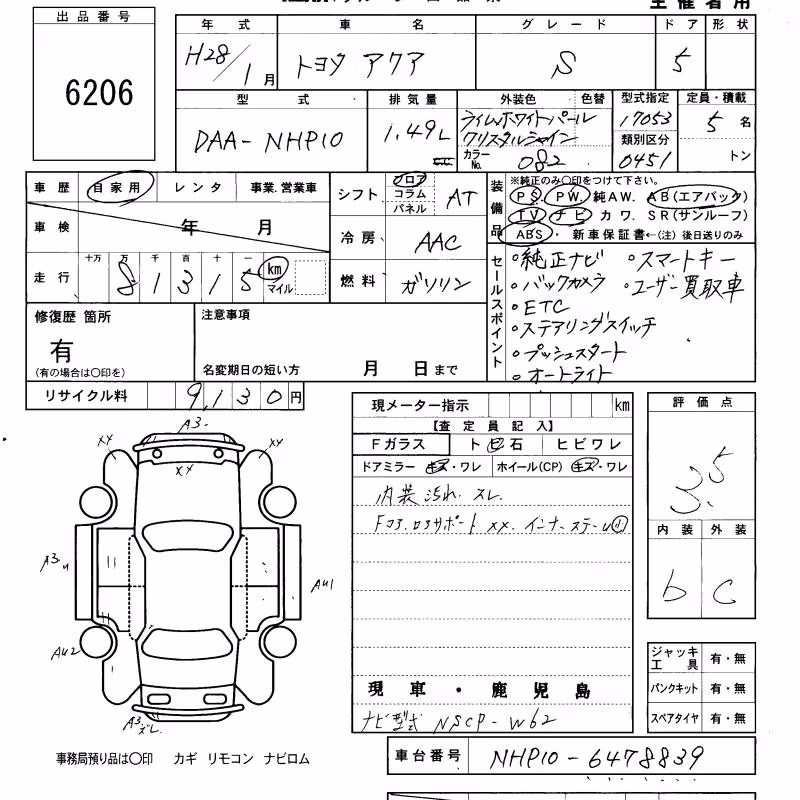 主催者用
出品番号
6206
年式 車名 グレード ドア 形状
H28/1月 トヨタ アクア S 5
型式 排気量 外装色 色替 型式指定 定員・積載
DAA-NHP10 1.49L ライムホワイトパール クリスタルシャイン 17053 5名
カラーNo. 082 類別区分 0451 トン
車歴 自家用 レンタ 事業.営業車
車検 年 月
走行 十万 万 千 百 十 一 km マイル
81315
シフト フロア コラム パネル AT
冷房 AAC
燃料 ガソリン
装備品 ※純正のみ○印をつけて下さい。
PS. PW. 純AW. AB(エアバック)
TV ナビ カワ. SR(サンルーフ)
ABS・ 新車保証書←(注) 後日送りのみ
セールスポイント
。純正ナビ 。スマートキー
。バックカメラ 。ユーザー買取車
。ETC
。ステアリングスイッチ
。プッシュスタート
。オートライト
修復歴 箇所
有
(有の場合は○印を)
注意事項
名変期日の短い方 月 日まで
リサイクル料 9,130円
現メーター指示 km
【査定員記入】
Fガラス トビ石 ヒビワレ
ドアミラー キズ・ワレ ホイール(CP) キズ・ワレ
内装汚れ.スレ.
現車・鹿児島
ナビ型式 NSCP-W62
評価点
3.5
内装 外装
b C
ジャッキ工具 有・無
パンクキット 有・無
スペアタイヤ 有・無
A3.
XX XX
XX
A3.
AU1
AU2
A3.
ズレ
事務局預り品は○印 カギ リモコン ナビロム
車台番号 NHP10-6478839